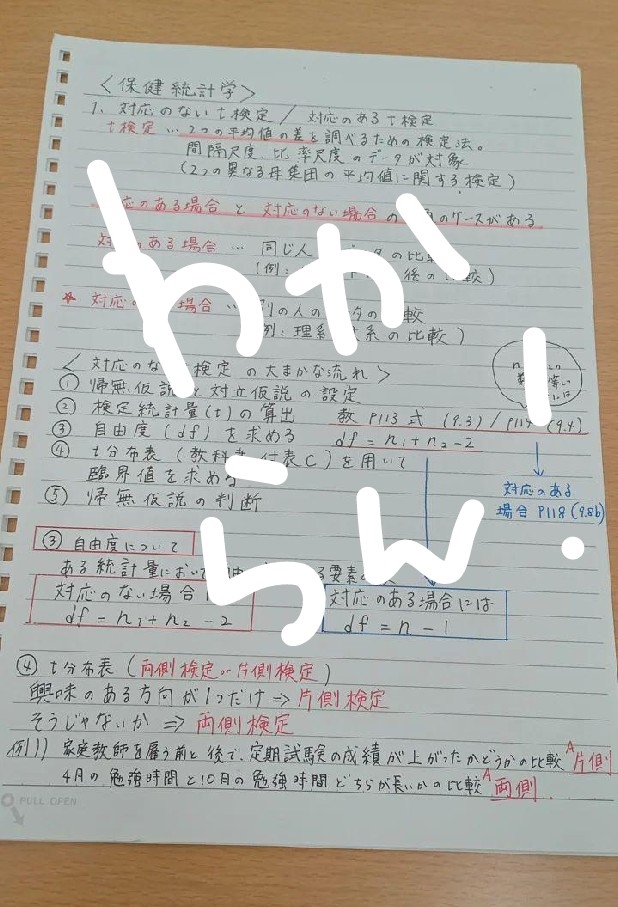 〈保健統計学〉
1. 対応のないt検定 / 対応のあるt検定
t検定 … 2つの平均値の差を調べるための検定法。
間隔尺度、比率尺度のデータが対象
(2つの異なる母集団の平均値に関する検定)
ある場合と対応のない場合の のケースがある
ある場合 … 同じ人 の比
(例: 後の 較)
★ 対応の 場合 … の人の の 較
例: 理系 系の比較)
〈対応のな 検定の大まかな流れ〉
① 帰無仮説と対立仮説の設定
② 検定統計量(t)の算出 教P113式(9.3)/P114(9.4)
③ 自由度(df)を求める df = n1+n2-2
④ t分布表(教科書 付表C)を用いて
臨界値を求める
⑤ 帰無仮説の判断
対応のある
場合P118(9.8b)
③ 自由度について
ある統計量において 由 る要素
対応のない場合
df = n1+n2-2
対応のある場合には
df = n-1
④ t分布表(両側検定or片側検定)
興味のある方向が1つだけ ⇒ 片側検定
そうじゃないか ⇒ 両側検定
例!! 家庭教師を雇う前と後で、定期試験の成績が上がったかどうかの比較 A 片側
4月の勉強時間と10月の勉強時間どちらが長いかの比較 A 両側
わから
らん!
PULL OPEN